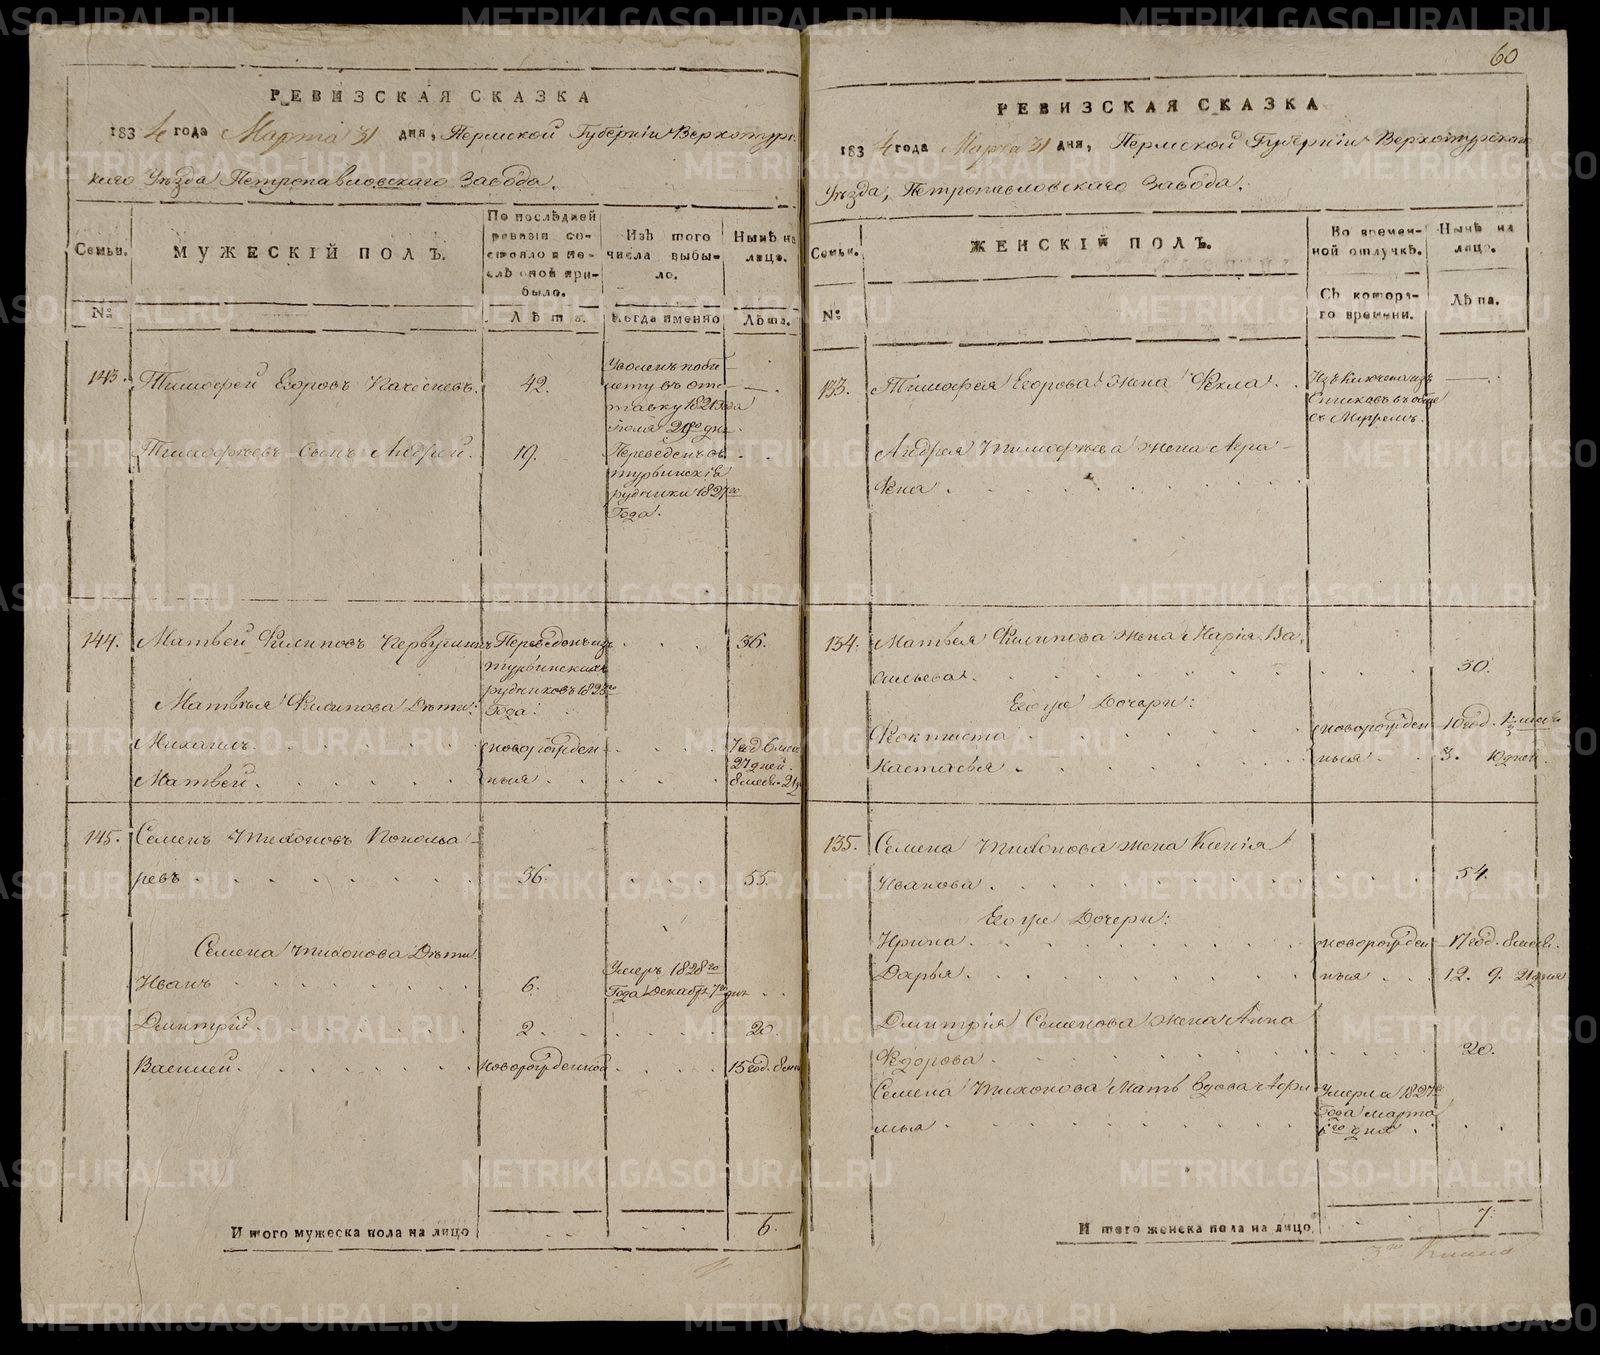 РЕВИЗСКАЯ СКАЗКА
1834 года Марта 31 дня, Пермской Губернiи Верхотурс-
каго Уѣзда Петропавловскаго Завода.
Семьи.
МУЖЕСКIЙ ПОЛЪ.
По послѣдней
ревизiи со-
стояло и по-
слѣ оной при-
было.
Изъ того
числа выбы-
ло.
Нынѣ на
лицо.
№
Лѣта.
Когда именно
Лѣта.
143.
Тимофей Егоровъ
42.
Уволенъ поби-
лету въ отс-
тавку 1821 Года
Iюля 29го дня.
Тимофѣевъ Сынъ Андрей.
19.
Переведенъ въ
турьинскiя
рудники 1827го
Года.
144.
Матвей Филиповъ Первушинъ
Переведенъ из
турьинскихъ
рудниковъ 1823го
Года.
36.
Матвѣя Филипова Дѣти:
Михаилъ.
новорожден
7 год. 6 меся
27 дней.
Матвей.
ныя
8 меся. 21 д
145.
Семенъ Тихоновъ Коноваа-
ревъ
36.
55.
Семена Тихонова Дѣти.
Иванъ
6.
Умеръ 1828го
Года Декабря 7го дня
Дмитрiй.
2.
20.
Василей.
новорожденной
15 год. 8 ме
И того мужеска пола на лицо
6.
60
РЕВИЗСКАЯ СКАЗКА
1834 года Марта 31 дня, Пермской Губернiи Верхотурскаго
Уѣзда, Петропавловскаго Завода.
Семьи.
ЖЕНСКIЙ ПОЛЪ.
Во времен-
ной отлучкѣ.
Нынѣ на
лицо.
№
Съ котора-
го времени.
Лѣта.
133.
Тимофея Егорова жена Фекла.
Изъключена изъ
Списковъ въобще
съ Мужемъ.
Андрея Тимофѣева жена Агра-
фена
134.
Матвѣя Филипова жена Марiя Ва-
сильева.
30.
Егоже Дочери:
Фоктиста
новорожден
10 год.
Настасья
ныя
3. 10 дней.
135.
Семена Тихонова жена Ксенiя
Иванова.
54.
Егоже Дочери:
Ирина.
новорожден
17 год. 8 меся.
Дарья.
ныя
12. 9. 21 дня
Дмитрiя Семенова жена Анна
Федорова.
20.
Семена Тихонова Мать вдова Афи-
мья
Умерла 1827го
Года марта
1го дня
И того женска пола на лицо
7.
METRIKI.GASO-URAL.RU